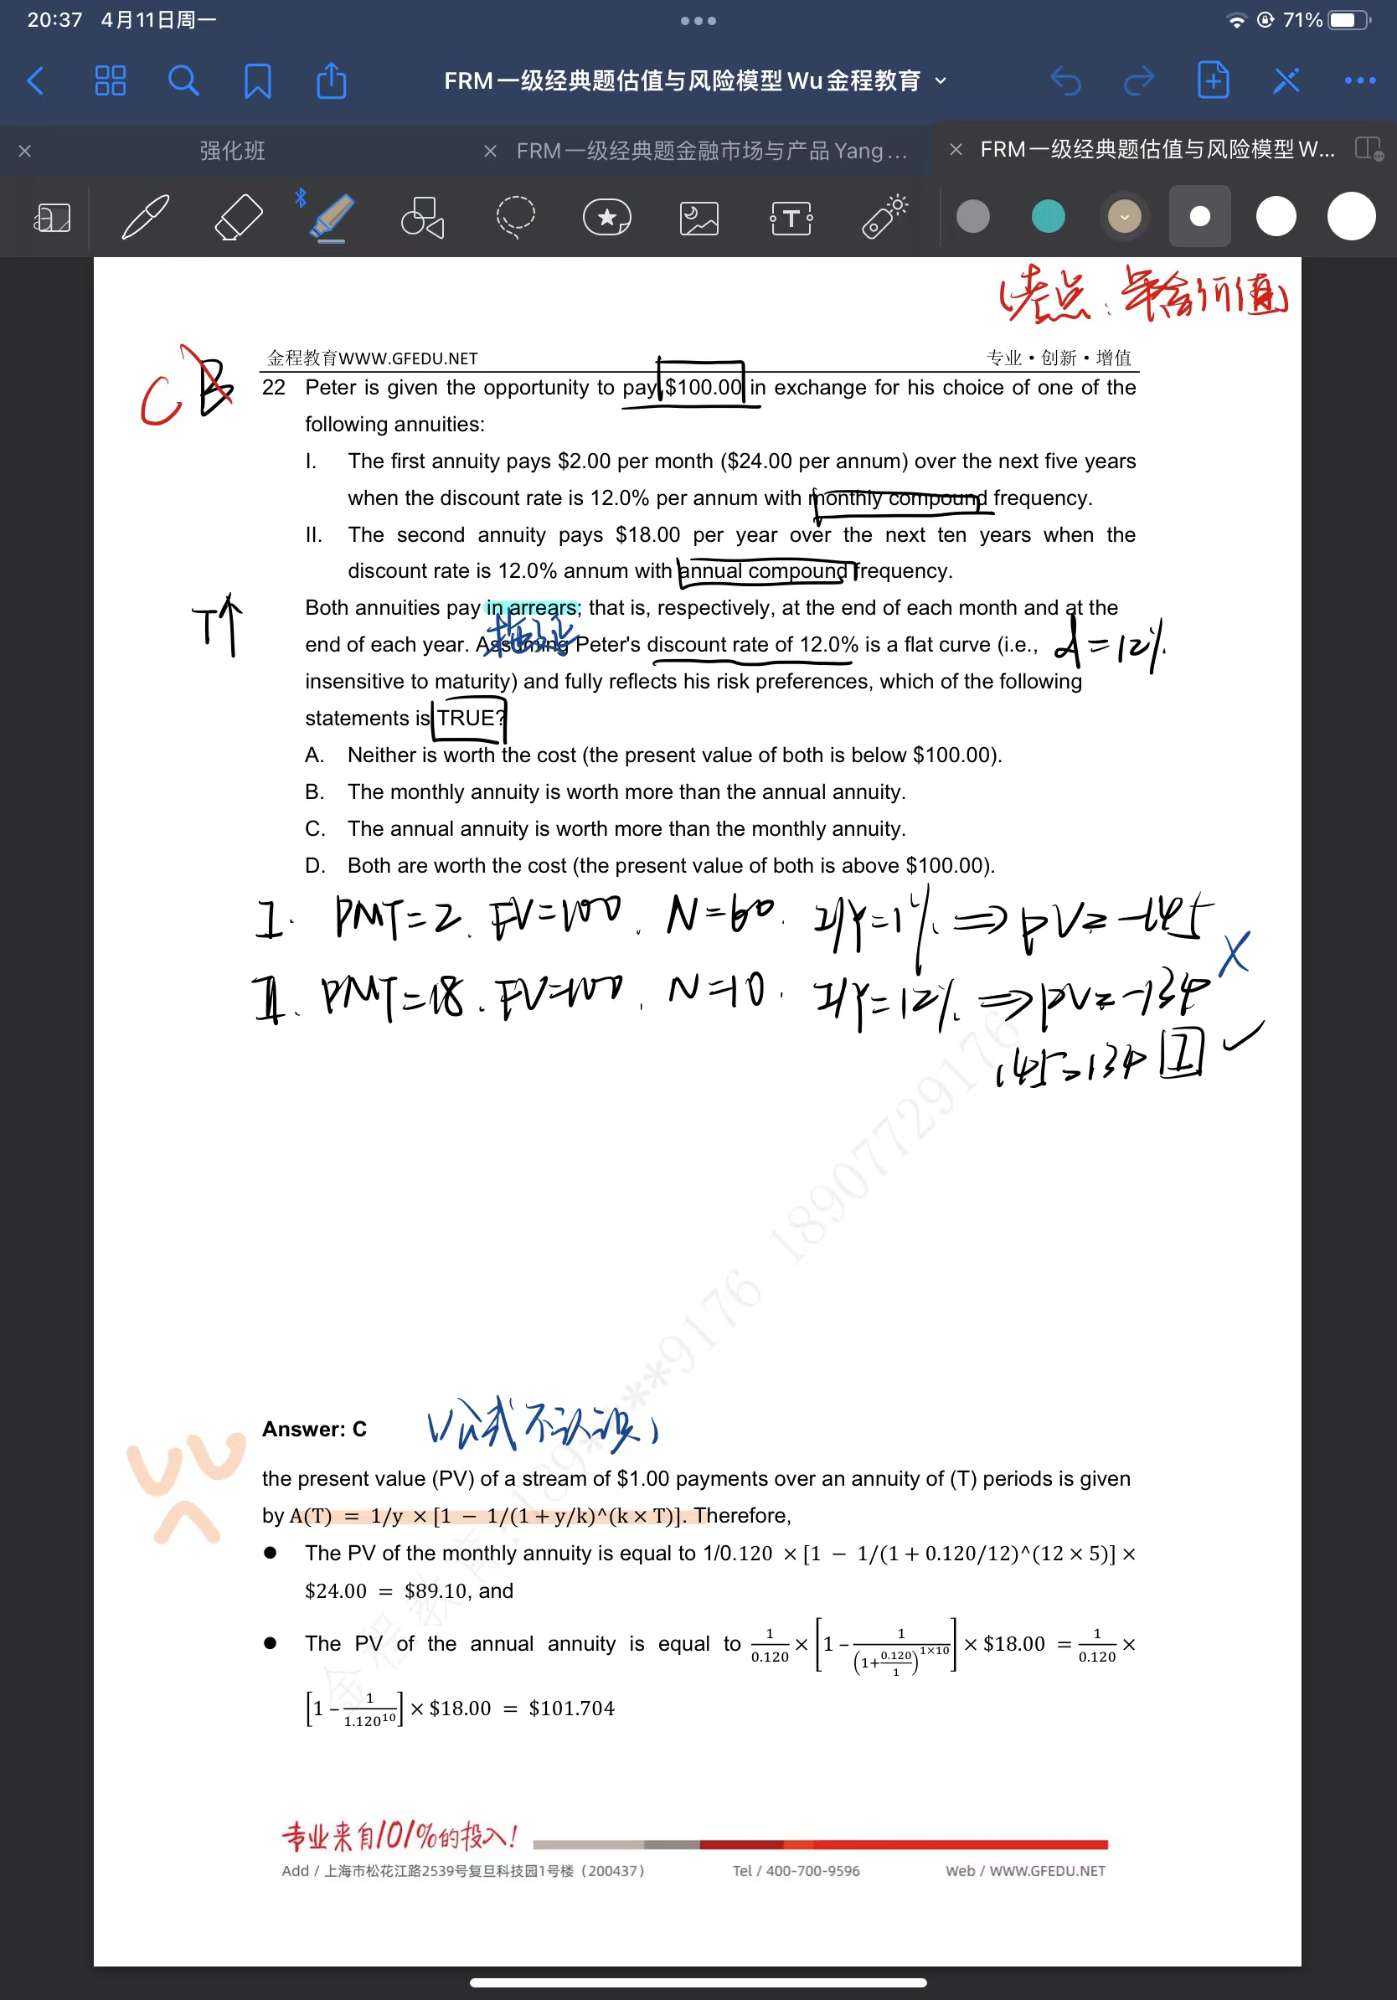 20:37 4月11日周一
71%
FRM一级经典题估值与风险模型Wu金程教育
强化班
FRM一级经典题金融市场与产品Yang...
FRM一级经典题估值与风险模型W...
(考点:年金估值)
金程教育WWW.GFEDU.NET 专业·创新·增值
C B
22 Peter is given the opportunity to pay $100.00 in exchange for his choice of one of the
following annuities:
I. The first annuity pays $2.00 per month ($24.00 per annum) over the next five years
when the discount rate is 12.0% per annum with monthly compound frequency.
II. The second annuity pays $18.00 per year over the next ten years when the
discount rate is 12.0% annum with annual compound frequency.
Both annuities pay in arrears; that is, respectively, at the end of each month and at the
T↑
end of each year. Assuming Peter's discount rate of 12.0% is a flat curve (i.e.,
d=12%
insensitive to maturity) and fully reflects his risk preferences, which of the following
statements is TRUE?
A. Neither is worth the cost (the present value of both is below $100.00).
B. The monthly annuity is worth more than the annual annuity.
C. The annual annuity is worth more than the monthly annuity.
D. Both are worth the cost (the present value of both is above $100.00).
I. PMT=2. FV=100. N=60. I/Y=1%. ⇒ PV=-145
II. PMT=18. FV=100. N=10. I/Y=12%. ⇒ PV=-134 ×
145>134 I ✓
Answer: C
(公式不认识)
the present value (PV) of a stream of $1.00 payments over an annuity of (T) periods is given
by A(T) = 1/y × [1 − 1/(1 + y/k)^(k × T)]. Therefore,
● The PV of the monthly annuity is equal to 1/0.120 × [1 − 1/(1 + 0.120/12)^(12 × 5)] ×
$24.00 = $89.10, and
● The PV of the annual annuity is equal to 1/0.120 × [1 − 1/(1+0.120/1)^1×10] × $18.00 = 1/0.120 ×
[1 − 1/1.120^10] × $18.00 = $101.704
金程教育 189****9176 18907729176
专业来自101%的投入!
Add / 上海市松花江路2539号复旦科技园1号楼(200437) Tel / 400-700-9596 Web / WWW.GFEDU.NET